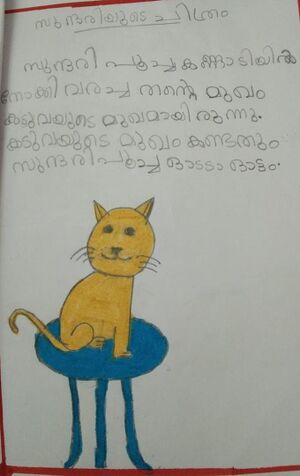 സുന്ദരിയുടെ ചിത്രം
സുന്ദരി പൂച്ച കണ്ണാടിയിൽ
നോക്കി വരച്ച തന്റെ മുഖം
കടുവയുടെ മുഖമായിരുന്നു.
കടുവയുടെ മുഖം കണ്ടതും
സുന്ദരിപൂച്ച ഓട്ടോ ഓട്ടം.